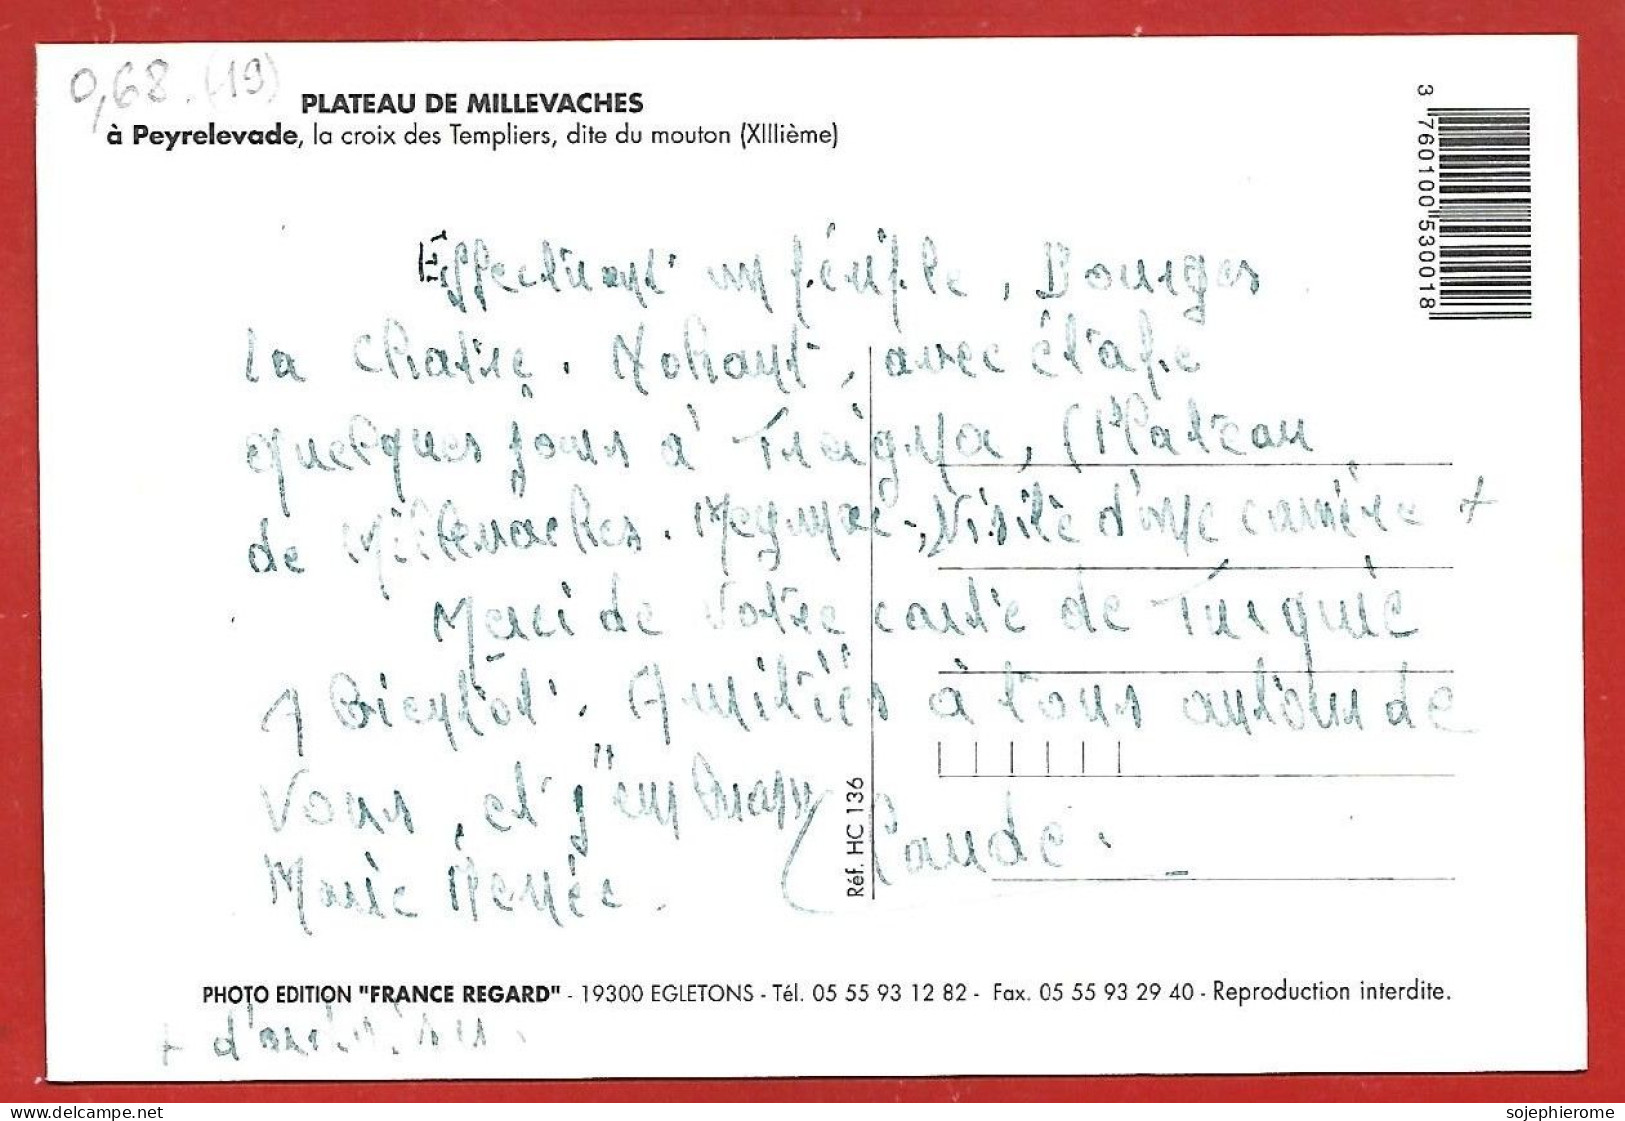 0,68. (19)
PLATEAU DE MILLEVACHES
à Peyrelevade, la croix des Templiers, dite du mouton (XIIIième)
3 760100 530018
Effectuant un périple, Bourges
la Chatre. Nohant, avec étape
quelques jours à Treignac, (Plateau
de Millevaches. Meymac, Visite d'une carrière +
Merci de votre carte de Turquie
A bientôt. Amitiés à tous autour de
vous, et j'embrasse
Marie Renée.
Claude.
Réf. HC 136
PHOTO EDITION "FRANCE REGARD" - 19300 EGLETONS - Tél. 05 55 93 12 82 - Fax. 05 55 93 29 40 - Reproduction interdite.
+ d'ardoises.
www.delcampe.net
sojephierome